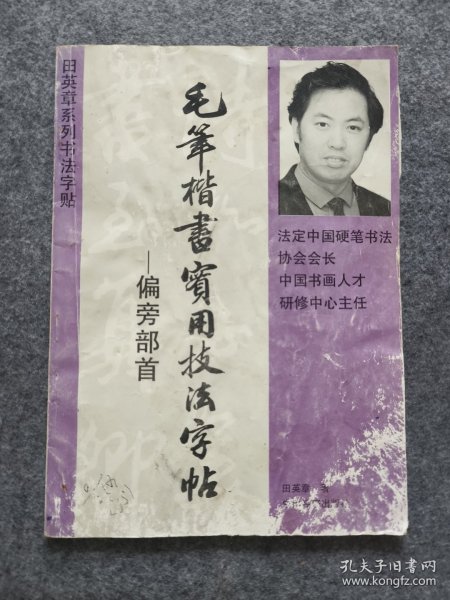 田英章系列书法字贴
毛筆楷書實用技法字帖
—偏旁部首
法定中国硬笔书法
协会会长
中国书画人才
研修中心主任
田英章
孔夫子旧书网
www.kongfz.com